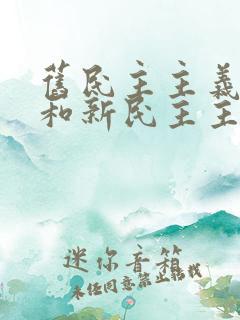 舊民主主義
和新民主主
迷你音箱
未经同意禁止转载